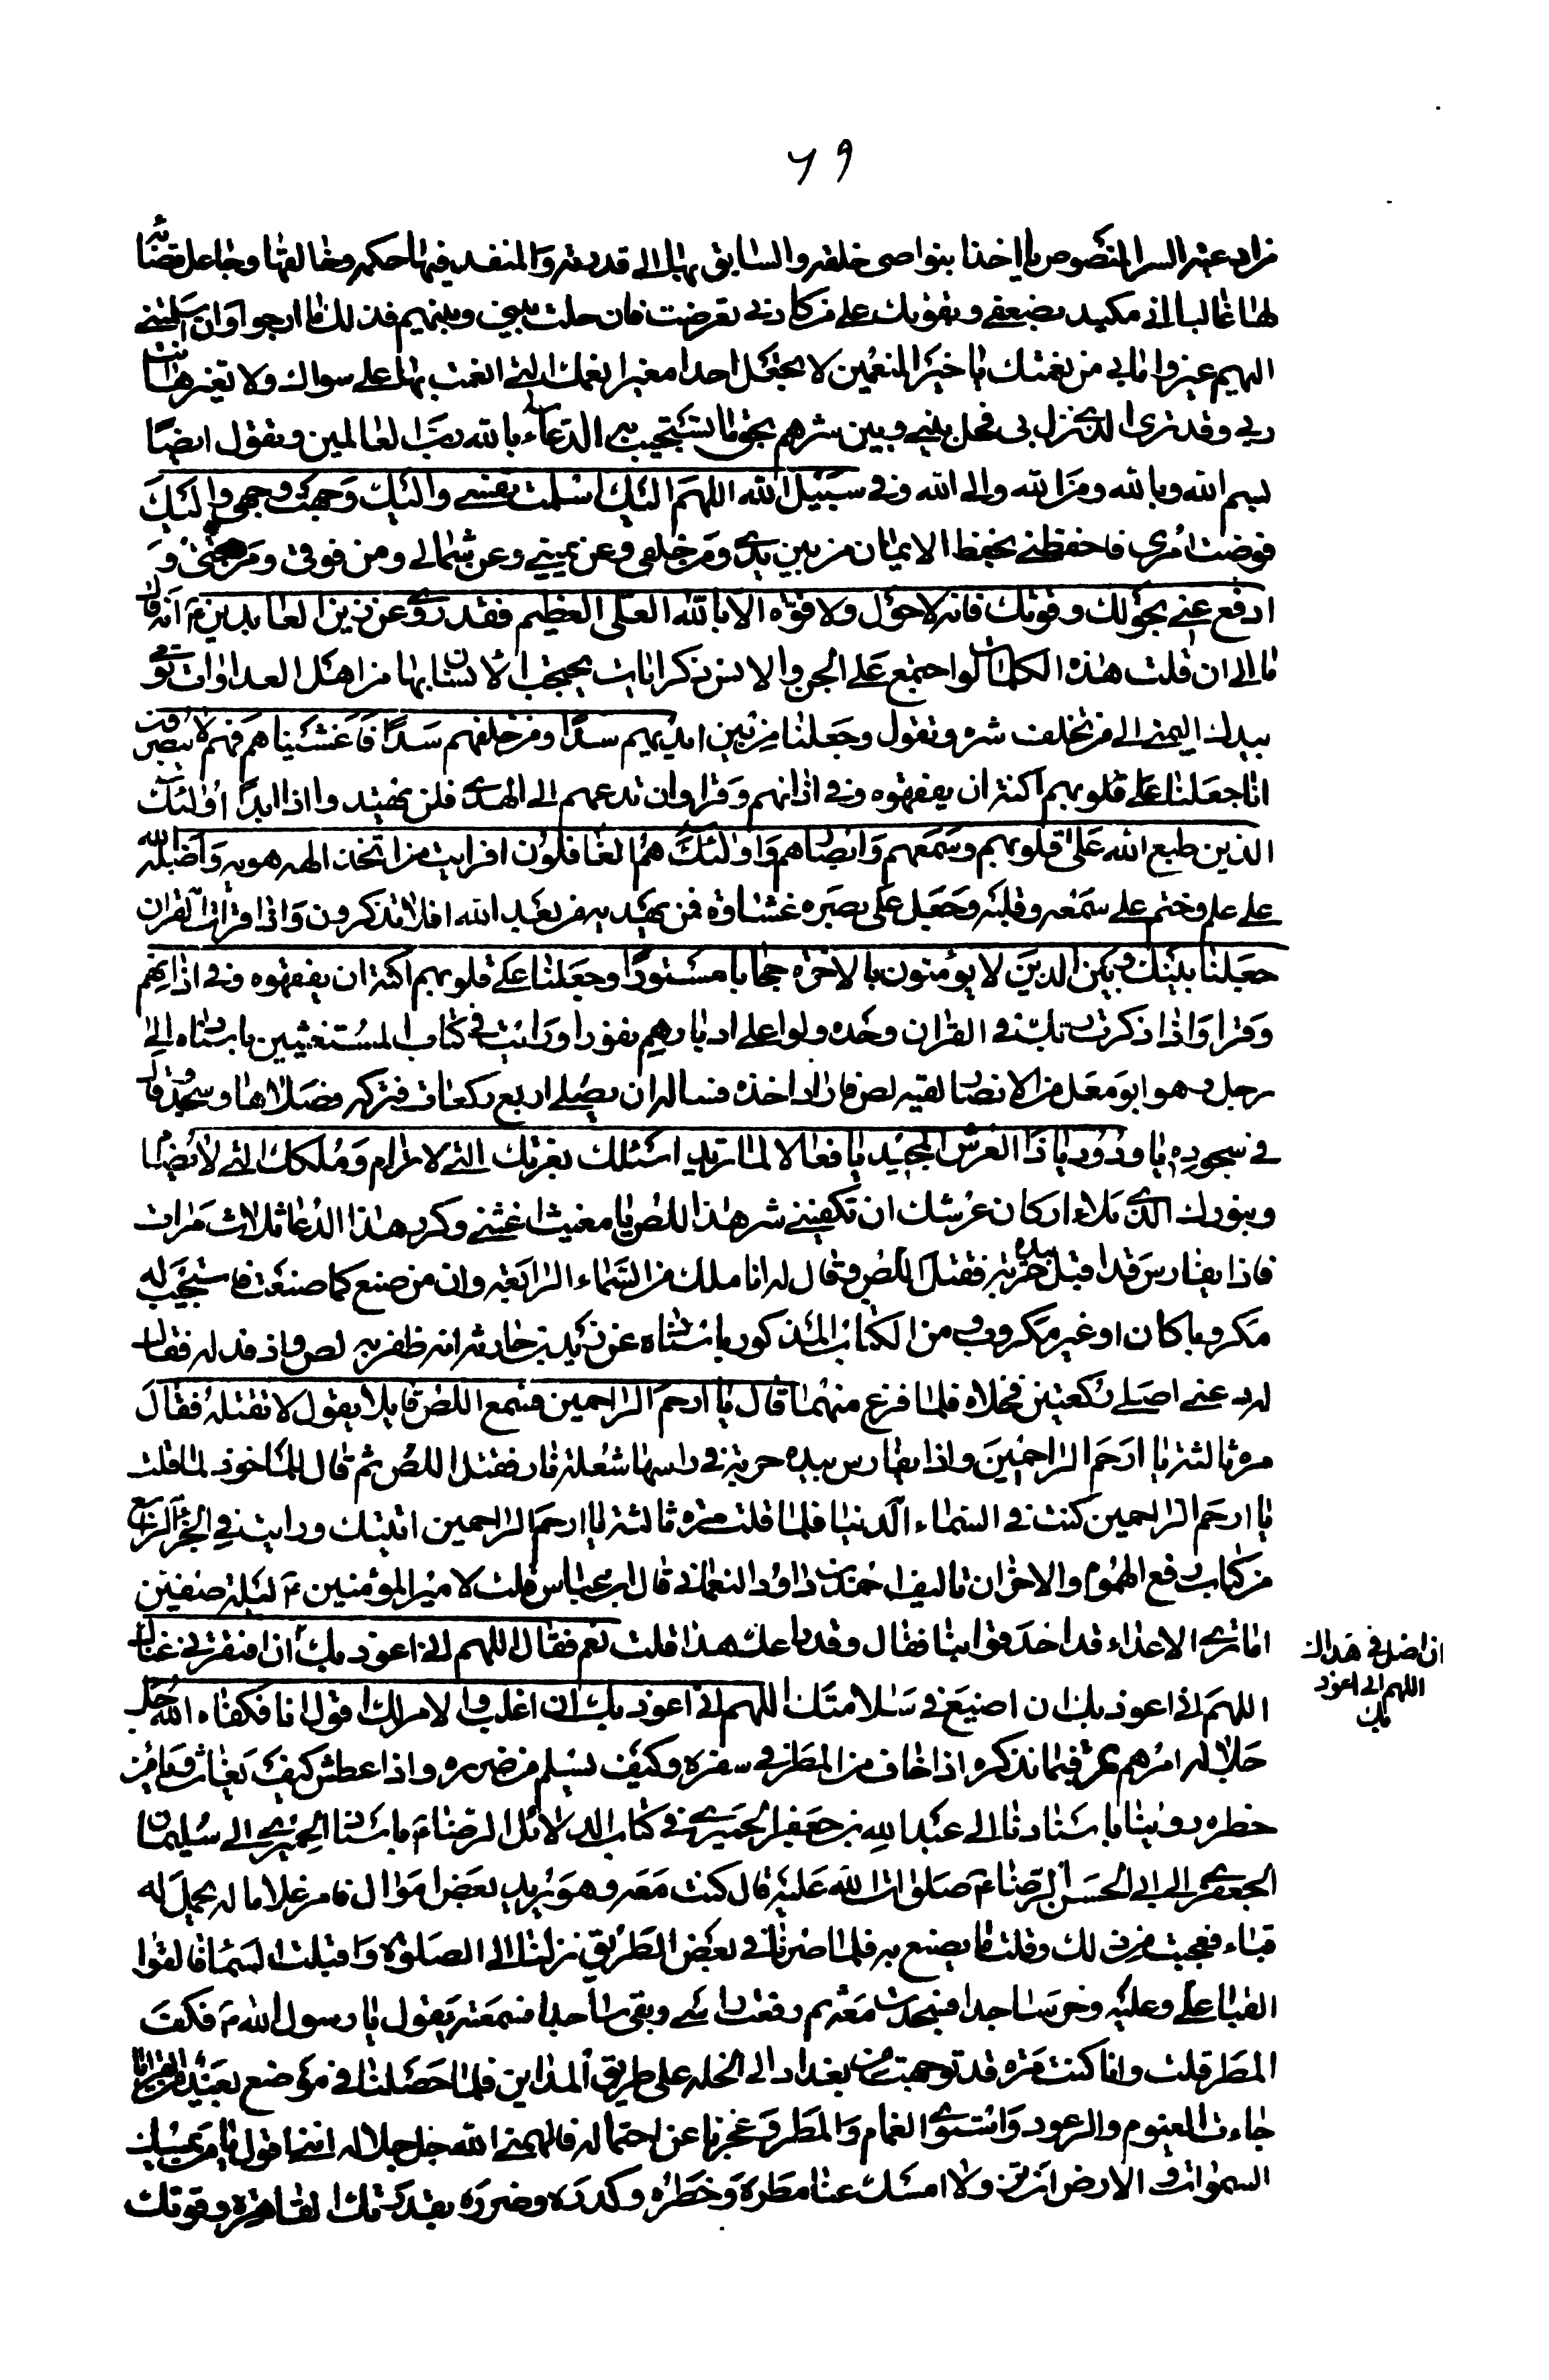 ٦٩
من ادعته السر المنصوص يا اخذا بنواصي خلقه والسابق بها الى قدرته والمنفد فيها حكمه وخالقها وجاعل قضائه
لها غالبا اني مكيد بضعفي وبقوتك على من كادني تعرضت فان حلت بيني وبينهم فذلك ما ارجوا وان اسلمتني
اليهم غيروا ما بي من نعمتك يا خير المنعمين لا تجعل احدا مغيرا نعمك التي انعمت بها على سواك ولا تغيرها انت
ربي وقد ترى الذي نزل بي فحل بيني وبين شرهم بحق ما تستجيب به الدعاء يا الله رب العالمين وتقول ايضا
بسم الله وبالله ومن الله والى الله وفي سبيل الله اللهم اليك اسلمت نفسي واليك وجهت وجهي واليك
فوضت امري فاحفظني بحفظ الايمان من بين يدي ومن خلفي وعن يميني وعن شمالي ومن فوقي ومن تحتي و
ادفع عني بحولك وقوتك فانه لا حول ولا قوة الا بالله العلي العظيم فقد روي عن زين العابدين ع انه قال
ما ابالي ان قلت هذه الكلمات لو اجتمع على الجن والانس ذكر ايات يحتجب الانسان بها من اهل العداوات تومي
بيدك اليمنى الى من تخلف شره وتقول وجعلنا من بين ايديهم سدا ومن خلفهم سدا فاغشيناهم فهم لا يبصرون
انا جعلنا على قلوبهم اكنة ان يفقهوه وفي اذانهم وقرا وان تدعهم الى الهدى فلن يهتدوا اذا ابدا اولئك
الذين طبع الله على قلوبهم وسمعهم وابصارهم واولئك هم الغافلون افرايت من اتخذ الهه هويه واضله الله
على علم وختم على سمعه وقلبه وجعل على بصره غشاوة فمن يهديه من بعد الله افلا تذكرون واذا قرات القران
جعلنا بينك وبين الذين لا يؤمنون بالاخرة حجابا مستورا وجعلنا على قلوبهم اكنة ان يفقهوه وفي اذانهم
وقرا واذا ذكرت ربك في القران وحده ولوا على ادبارهم نفورا ورايت في كتاب المستغيثين باسناده الى
رجل هو ابو معلق من الانصار لقيه لص فاراد اخذه فساله ان يصلي اربع ركعات فتركه فصلاها وسجد وقال
في سجوده يا ودود يا ذا العرش المجيد يا فعالا لما تريد اسئلك بعزتك التي لا ترام وملكك الذي لا يضام
وبنورك الذي ملاء اركان عرشك ان تكفيني شر هذا اللص يا مغيث اغثني وكرر هذا الدعا ثلاث مرات
فاذا بفارس قد اقبل بيده حربة فقتل اللص وقال له انا ملك من السماء الرابعة وان من صنع كما صنعت استجيب له
مكروبا كان او غير مكروب ومن الكتاب المذكور باسناده عن زيد بن حارثة انه ظفر به لص واراد قتله فقال
له دعني اصلي ركعتين فخلاه فلما فرغ منهما قال يا ارحم الراحمين فسمع اللص قايلا يقول لا تقتله فقال
مرة ثالثة يا ارحم الراحمين واذا بفارس بيده حربة في راسها شعلة نار فقتل اللص ثم قال للماخوذ لما قلت
يا ارحم الراحمين كنت في السماء الدنيا فلما قلت مرة ثالثة يا ارحم الراحمين اتيتك ورايت في الجزء الرابع
من كتاب دفع الهموم والاحزان تاليف احمد بن داود النعماني قال ابن عباس قلت لامير المؤمنين ع ليلة صفين
اما ترى الاعداء قد احدقوا بنا فقال وقد راعك هذا قلت نعم فقال اللهم اني اعوذ بك ان افتقر في غناك
اللهم اني اعوذ بك ان اضيع في سلامتك اللهم اني اعوذ بك ان اغلب والامر لك اقول انا فكفاه الله جل
جلاله امرهم فيما نذكره اذا خاف من المطر في سفره وكيف يسلم من ضرره واذا عطش كيف يغاث ويامن
خطره روينا باسنادنا الى عبد الله بن جعفر الحميري في كتاب الدلائل الرضا ع باسناد الحميري الى سليمان
الجعفري الى ابي الحسن الرضا ع صلوات الله عليه قال كنت معه وهو يريد بعض امواله فامر غلاما له يحمل له
قباء فعجبت من ذلك وقلت ما يصنع به فلما صرنا في بعض الطريق نزلنا الى الصلوة واقبلت السماء فالقوا
القبا على وعليه وخر ساجدا فسجدت معه ثم رفعت راسي وبقي ساجدا فسمعته يقول يا رسول الله ص فكف
المطر قلت وانا كنت مرة قد توجهت من بغداد الى الحلة على طريق المداين فلما حصلنا في موضع بعيد من العمارة
جاءت الغيوم والرعود واستوى الغمام والمطر وعجزنا عن احتماله فالهمني الله جل جلاله انني اقول يا من يمسك
السموات والارض ان تزولا امسك عنا مطره وخطره وكدره وضرره بقدرتك القاهرة وقوتك
ان اضل في هداك
اللهم اني اعوذ
بك